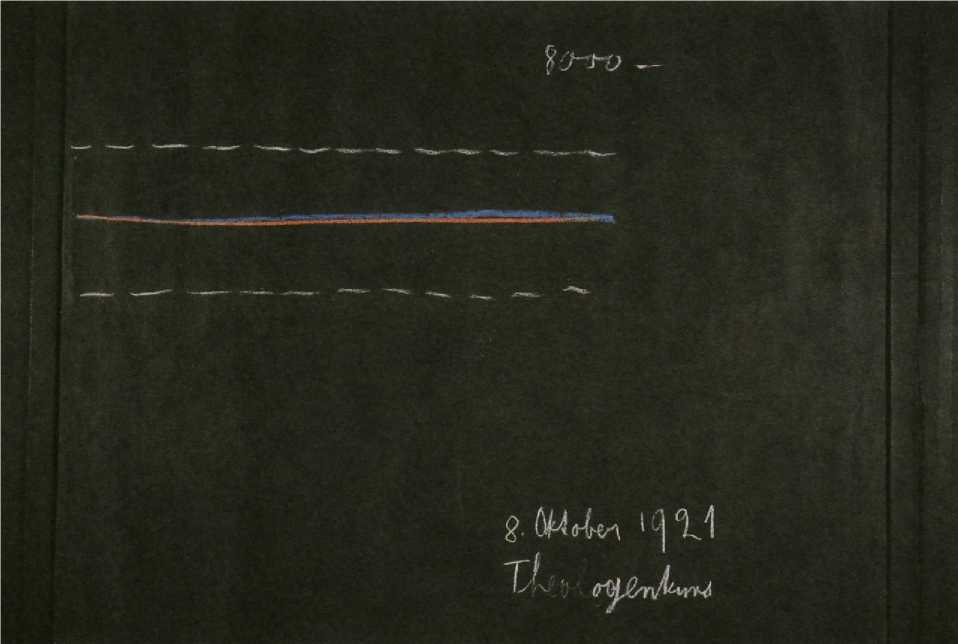 8000 —
8. Oktober 1921
Theologenkurs